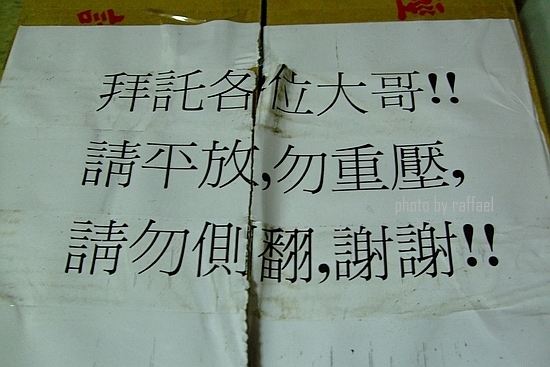 拜託各位大哥!!
請平放,勿重壓,
photo by raffael
請勿側翻,謝謝!!